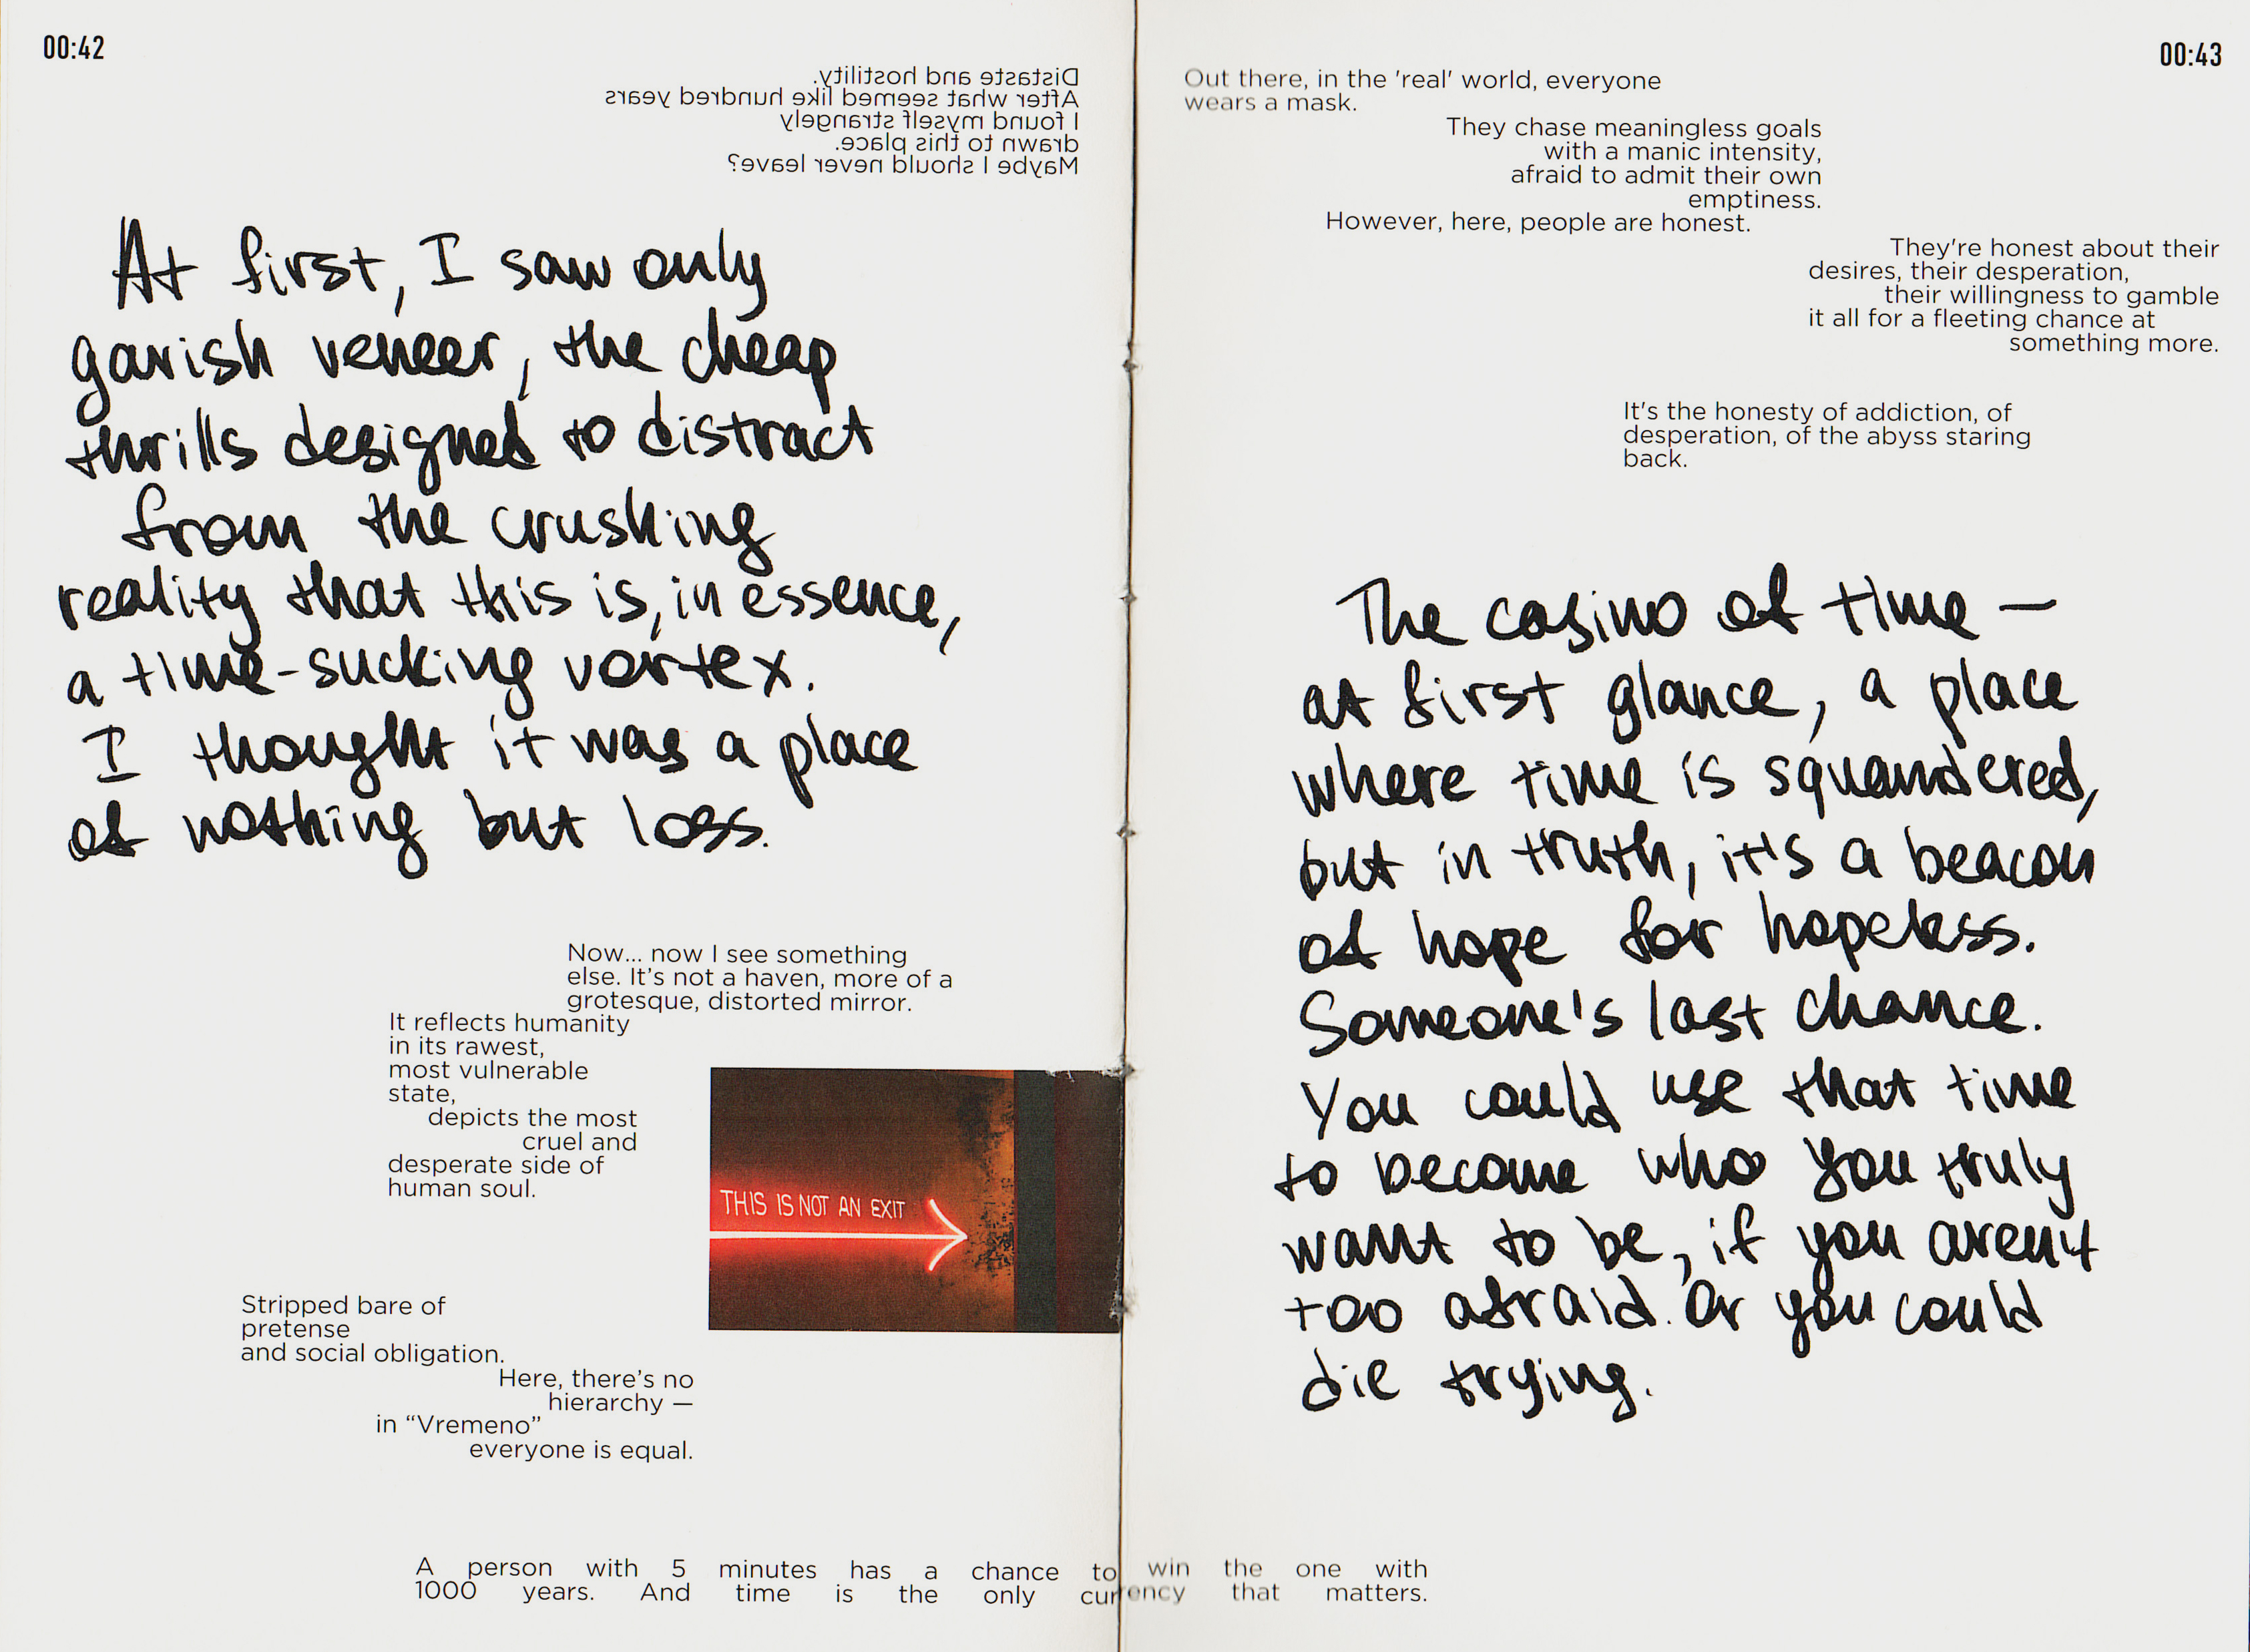 00:42
Distaste and hostility.
After what seemed like hundred years
I found myself strangely
drawn to this place.
Maybe I should never leave?
At first, I saw only
garish veneer, the cheap
thrills designed to distract
from the crushing
reality that this is, in essence,
a time-sucking vortex.
I thought it was a place
of nothing but loss.
Now... now I see something
else. It's not a haven, more of a
grotesque, distorted mirror.
It reflects humanity
in its rawest,
most vulnerable
state,
depicts the most
cruel and
desperate side of
human soul.
THIS IS NOT AN EXIT
Stripped bare of
pretense
and social obligation.
Here, there's no
hierarchy —
in “Vremeno”
everyone is equal.
00:43
Out there, in the 'real' world, everyone
wears a mask.
They chase meaningless goals
with a manic intensity,
afraid to admit their own
emptiness.
However, here, people are honest.
They're honest about their
desires, their desperation,
their willingness to gamble
it all for a fleeting chance at
something more.
It's the honesty of addiction, of
desperation, of the abyss staring
back.
The casino of time —
at first glance, a place
where time is squandered,
but in truth, it's a beacon
of hope for hopeless.
Someone's last chance.
You could use that time
to become who you truly
want to be, if you aren't
too afraid. Or you could
die trying.
A person with 5 minutes has a chance to win the one with
1000 years. And time is the only currency that matters.